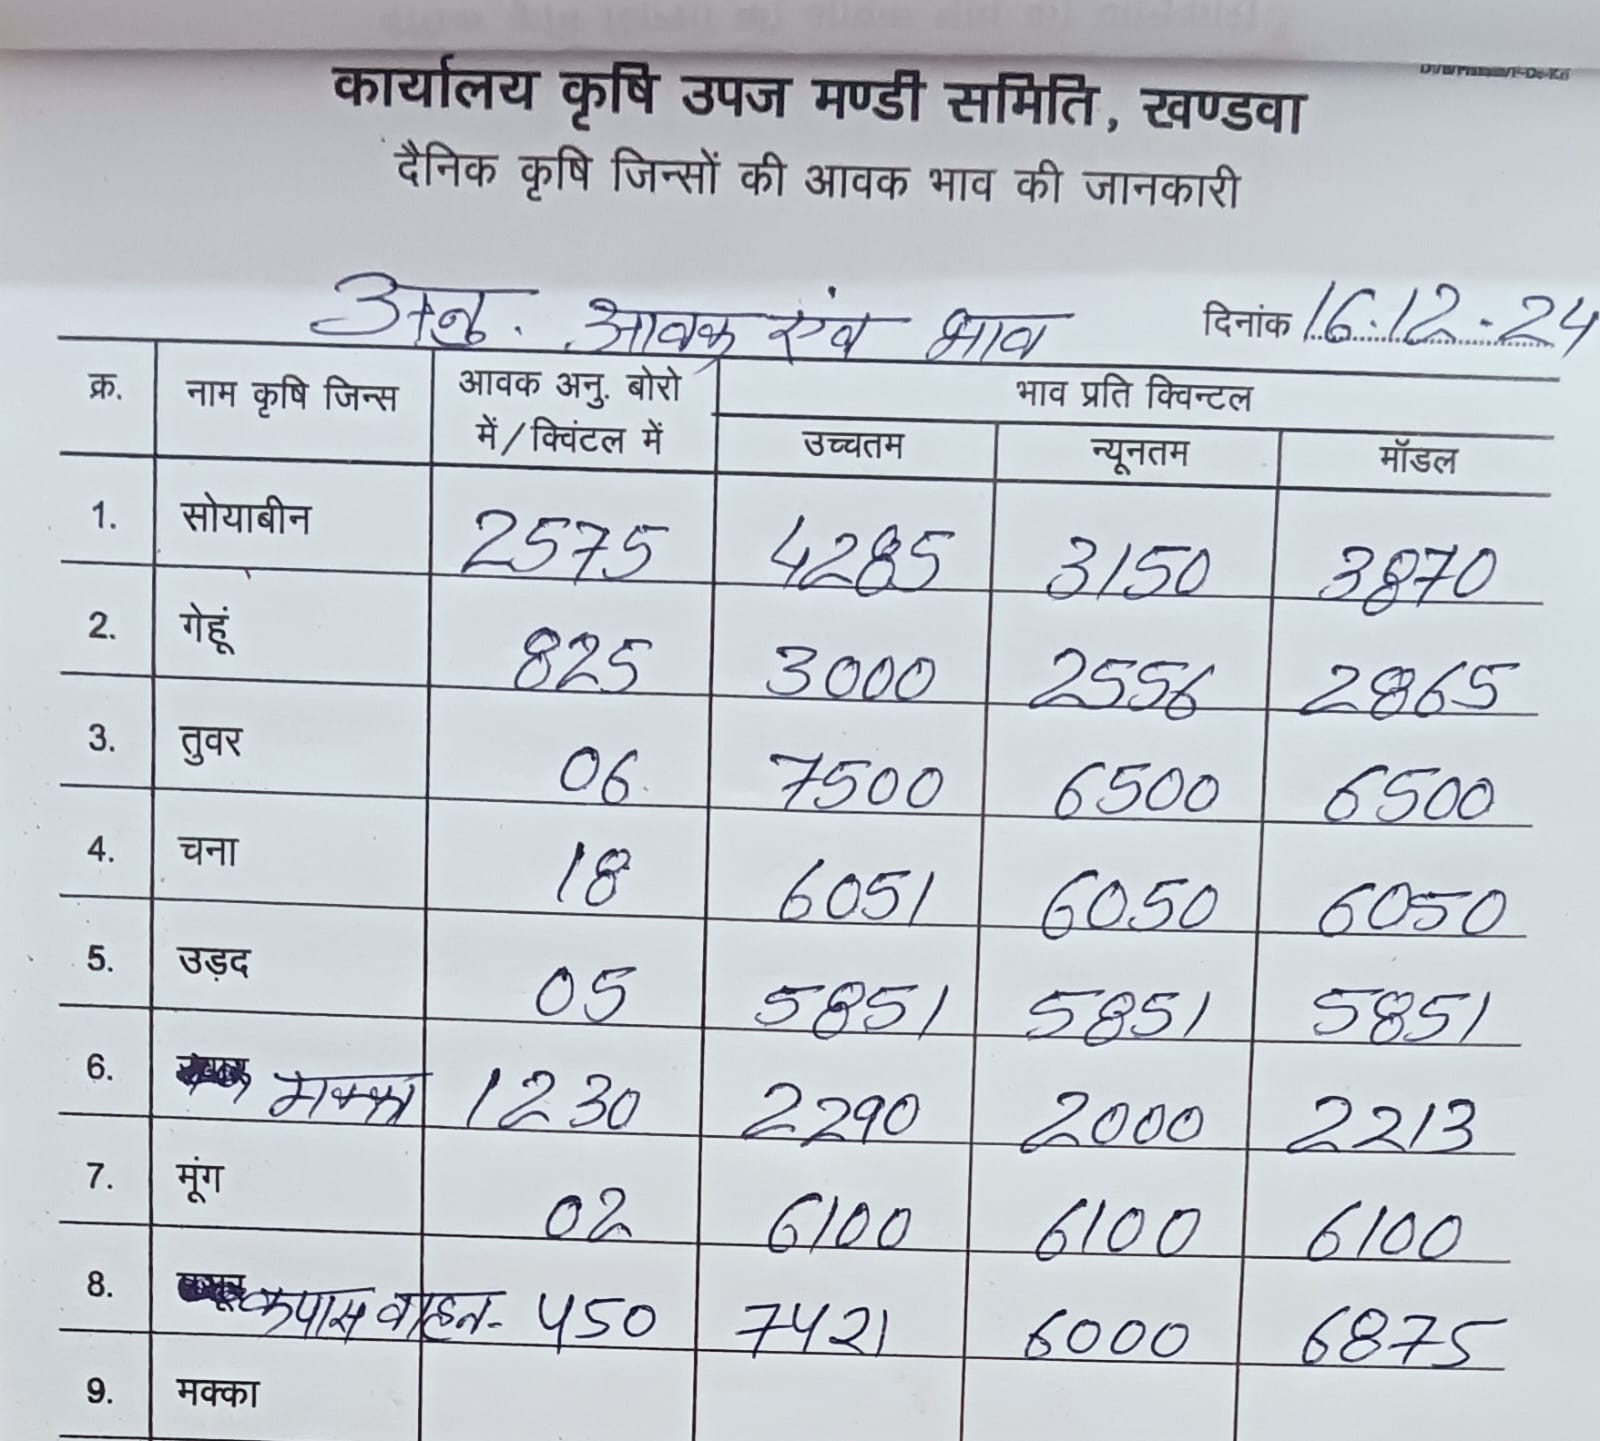 कार्यालय कृषि उपज मण्डी समिति, खण्डवा
दैनिक कृषि जिन्सों की आवक भाव की जानकारी
अनु. आवक एंव भाव दिनांक 16.12.24
क्र. नाम कृषि जिन्स आवक अनु. बोरो में/क्विंटल में भाव प्रति क्विन्टल
उच्चतम न्यूनतम मॉडल
1. सोयाबीन 2575 4285 3150 3870
2. गेहूं 825 3000 2556 2865
3. तुवर 06 7500 6500 6500
4. चना 18 6051 6050 6050
5. उड़द 05 5851 5851 5851
6. मक्का 1230 2290 2000 2213
7. मूंग 02 6100 6100 6100
8. कपास वाहन- 450 7421 6000 6875
9. मक्का